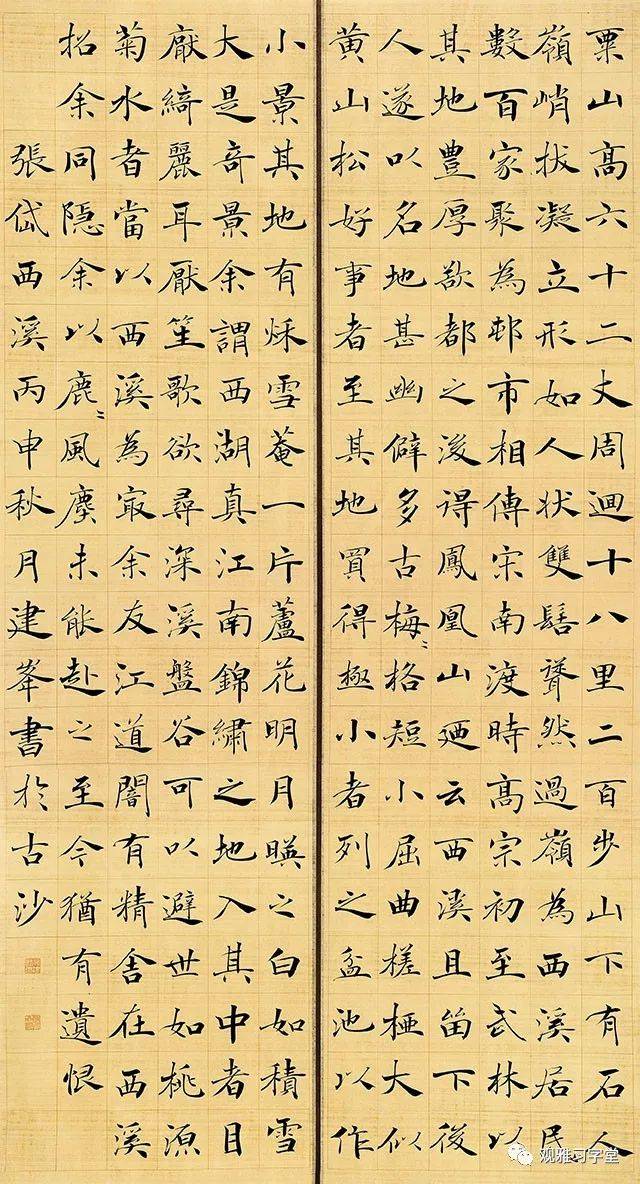 粟山高六十二丈周迴十八里二百步山下有石人
嶺峭拔凝立形如人狀雙髻聳然過嶺為西溪居民
數百家聚為邨市相傳宋南渡時高宗初至武林以
其地豐厚欲都之後得鳳凰山廼云西溪且畄下後
人遂以名地甚幽僻多古梅〻格短小屈曲槎椏大似
黄山松好事者至其地買得極小者列之盆池以作
小景其地有秌雪菴一片蘆花明月暎之白如積雪
大是奇景余謂西湖真江南錦繡之地入其中者目
厭綺麗耳厭笙歌欲尋深溪盤谷可以避世如桃源
菊水者當以西溪為冣余友江道闇有精舍在西溪
招余同隱余以鹿〻風塵未能赴之至今猶有遺恨
張岱西溪丙申秋月建峯書於古沙
观雅习字堂